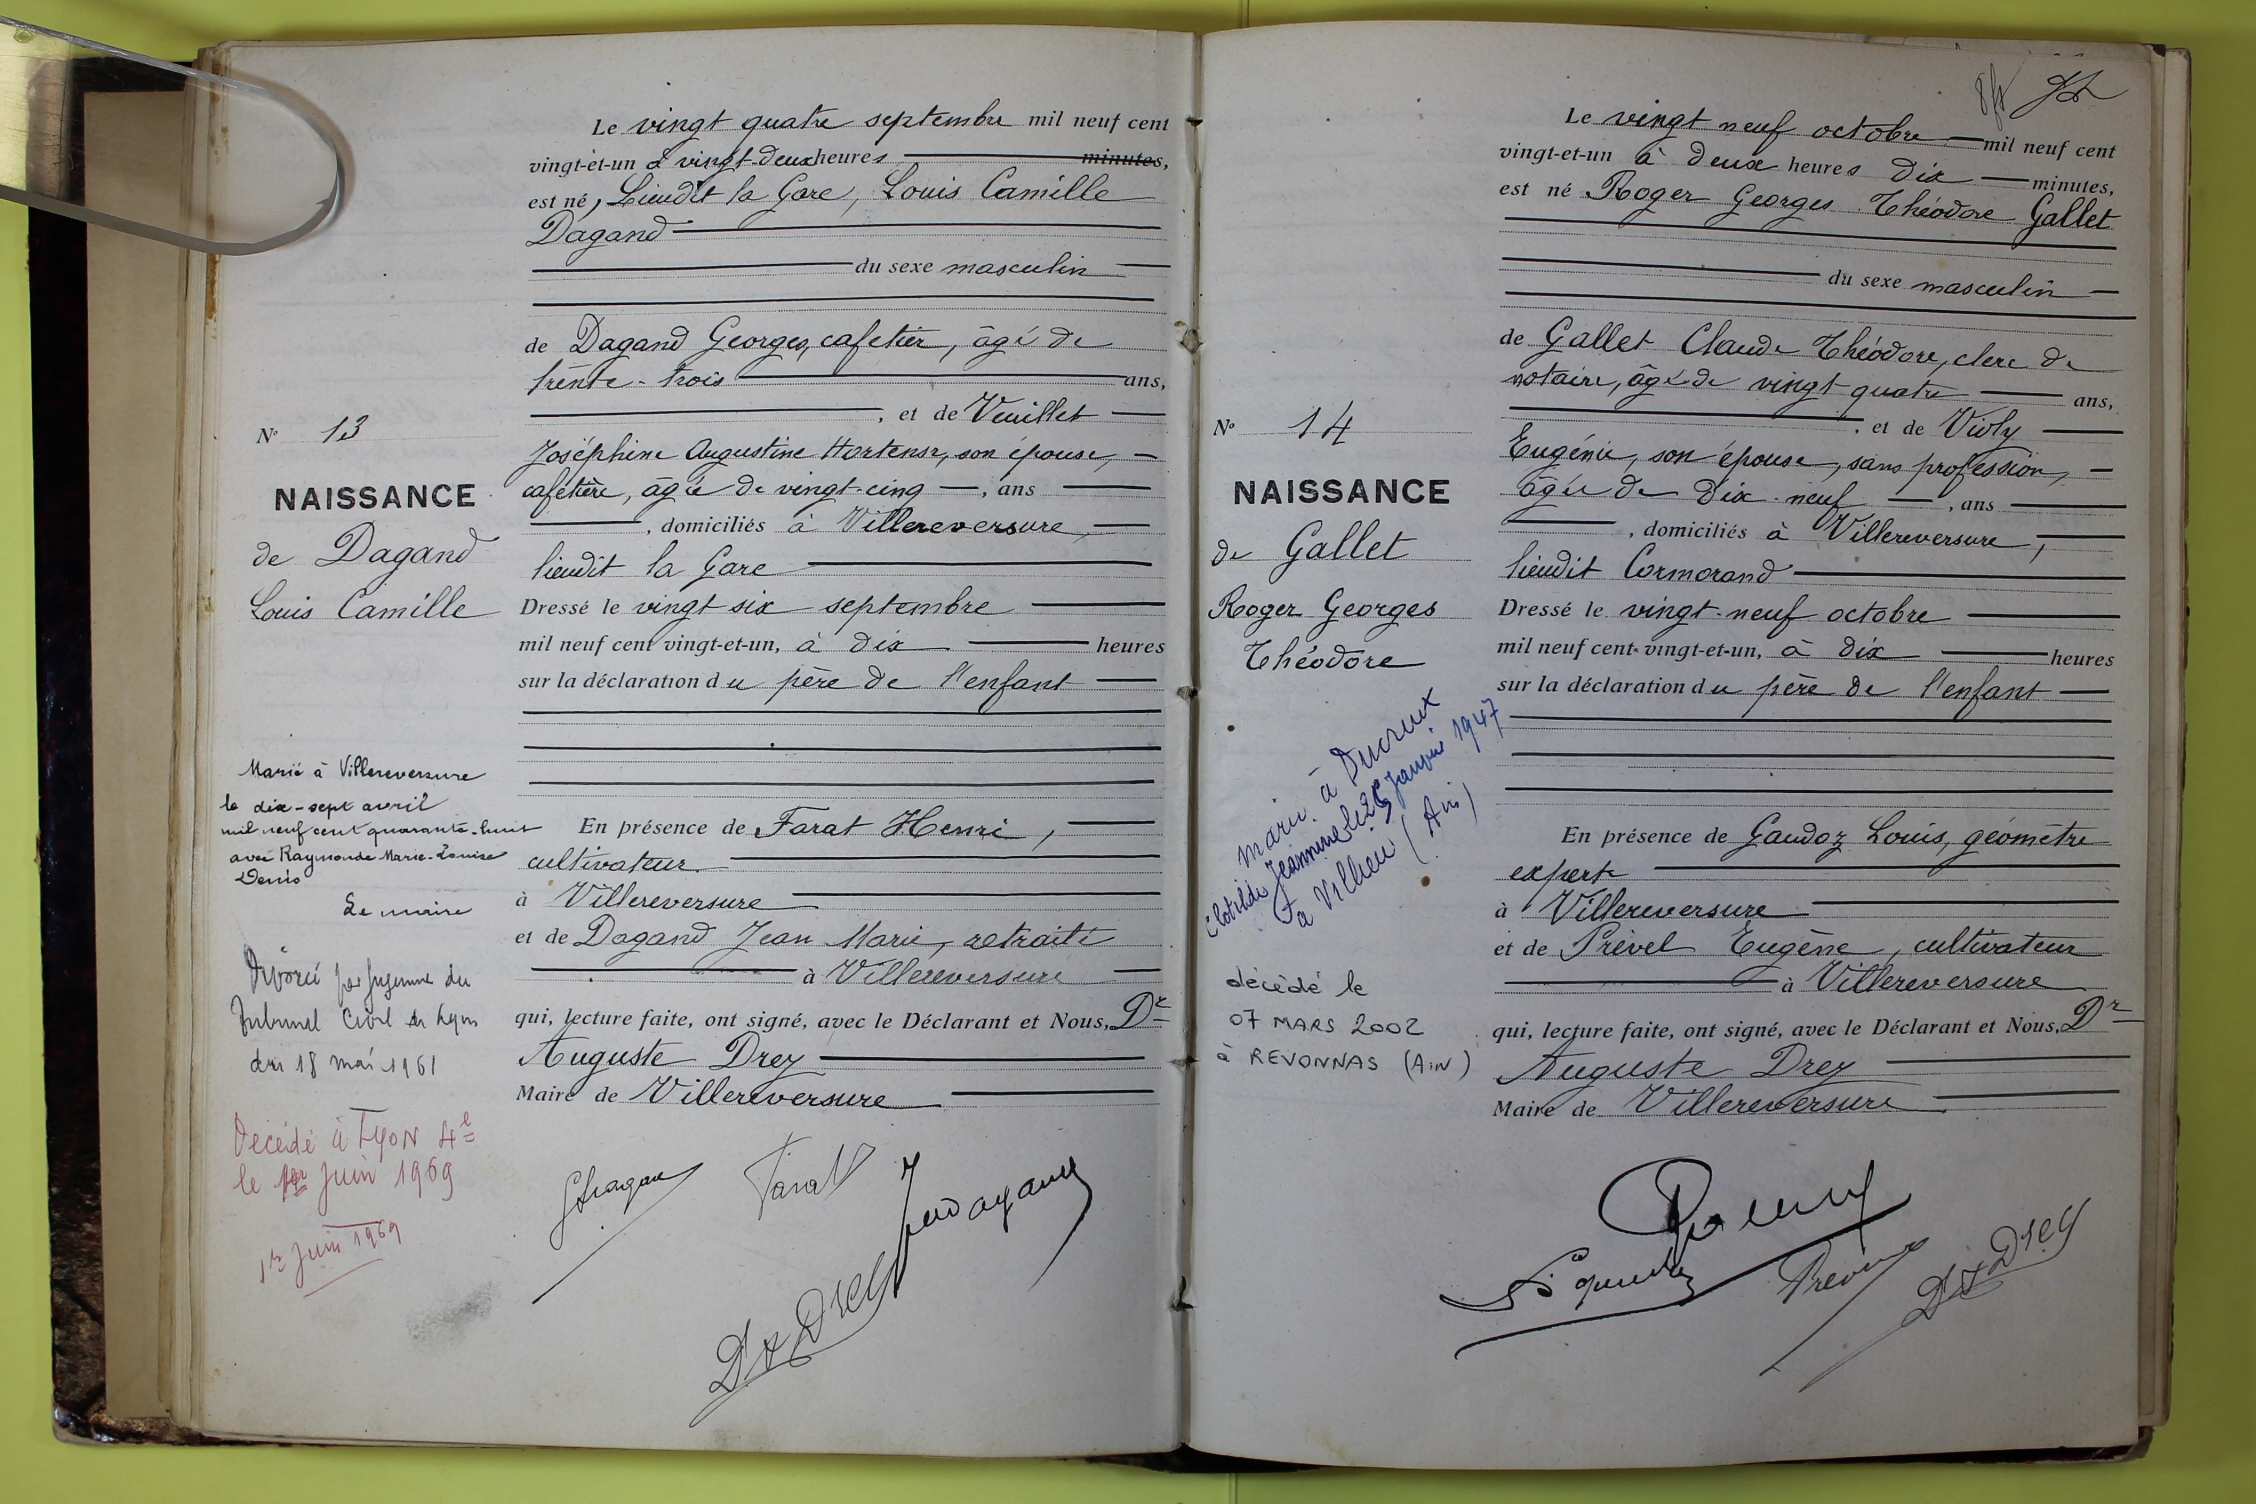 Le vingt quatre septembre mil neuf cent
vingt-et-un à vingt-deux heures minutes,
est né, Lieudit la Gare, Louis Camille
Dagand
du sexe masculin
de Dagand Georges, cafetier, âgé de
trente-trois ans,
, et de Vuillet
Joséphine Augustine Hortense, son épouse,
cafetière, âgée de vingt-cinq, ans
, domiciliés à Villereversure,
lieudit la Gare
Dressé le vingt six septembre
mil neuf cent vingt-et-un, à dix heures
sur la déclaration du père de l'enfant
En présence de Farat Henri,
cultivateur
à Villereversure
et de Dagand Jean Marie, retraité
à Villereversure
qui, lecture faite, ont signé, avec le Déclarant et Nous, Dr
Auguste Drey
Maire de Villereversure
N° 13
NAISSANCE
de Dagand
Louis Camille
Marié à Villereversure
le dix-sept avril
mil neuf cent quarante-huit
avec Raymonde Marie-Louise
Denis
Le maire
Divorcé par jugement du
Tribunal Civil de Lyon
du 18 mai 1961
Décédé à Lyon 4e
le 1er Juin 1969
1er Juin 1969
Farat
Dr Drey
Le vingt neuf octobre mil neuf cent
vingt-et-un à deux heures dix minutes,
est né Roger Georges Théodore Gallet
du sexe masculin
de Gallet Claude Théodore, clerc de
notaire, âgé de vingt-quatre ans,
, et de Violy
Eugénie, son épouse, sans profession,
âgée de dix-neuf, ans
, domiciliés à Villereversure,
lieudit Cormorand
Dressé le vingt-neuf octobre
mil neuf cent-vingt-et-un, à dix heures
sur la déclaration du père de l'enfant
En présence de Gaudoz Louis, géomètre
expert
à Villereversure
et de Prével Eugène, cultivateur
à Villereversure
qui, lecture faite, ont signé, avec le Déclarant et Nous, Dr
Auguste Drey
Maire de Villereversure
N° 14
NAISSANCE
de Gallet
Roger Georges
Théodore
marié à Ducreux
Clotilde Jeannine le 25 Janvier 1947
à Villieu (Ain)
décédé le
07 MARS 2002
à REVONNAS (AIN)
Prével
Dr Drey